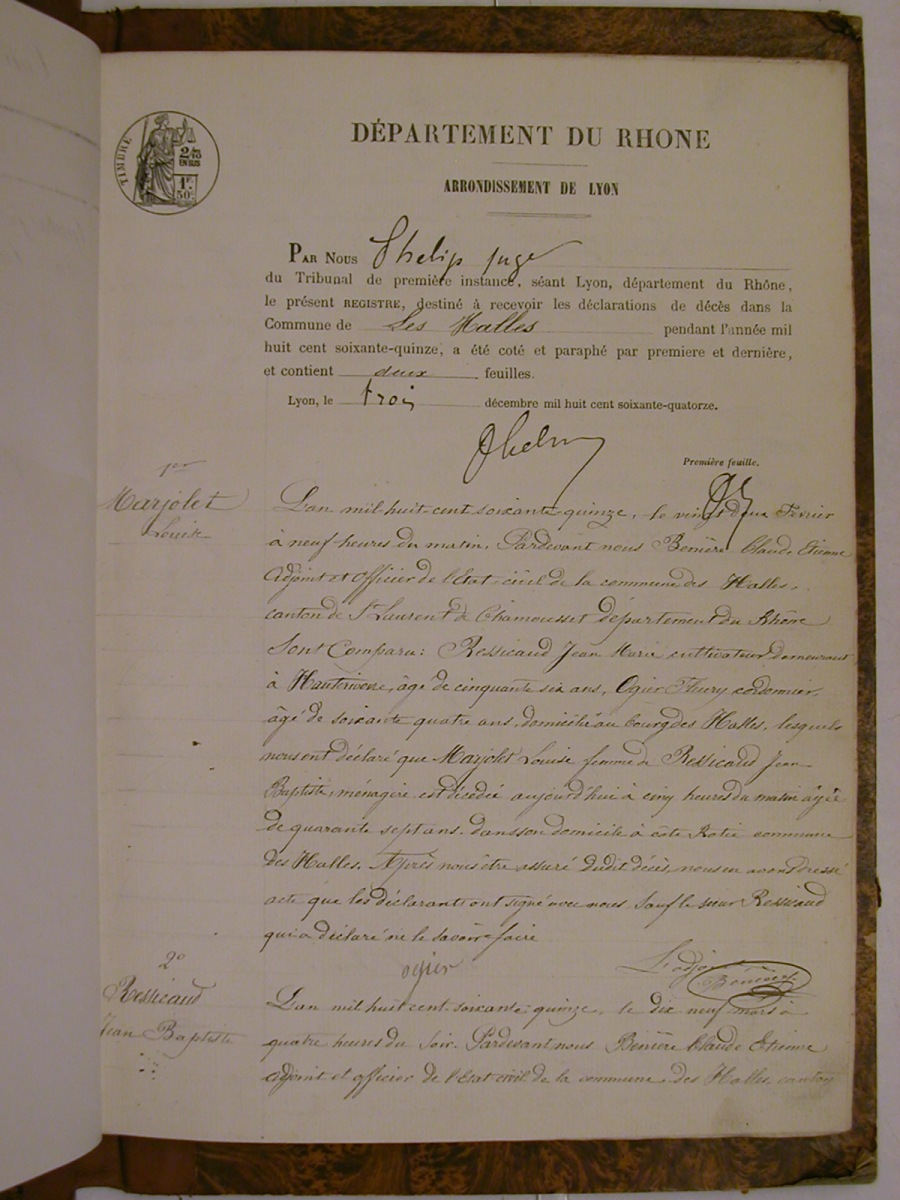 TIMBRE
2/10
EN SUS
1F
50C
DÉPARTEMENT DU RHONE
ARRONDISSEMENT DE LYON
PAR NOUS Phelip juge
du Tribunal de première instance, séant Lyon, département du Rhône,
le présent REGISTRE, destiné à recevoir les déclarations de décès dans la
Commune de Les Halles pendant l'année mil
huit cent soixante-quinze, a été coté et paraphé par premiere et dernière,
et contient deux feuilles.
Lyon, le trois décembre mil huit cent soixante-quatorze.
Phelip
Première feuille.
1er
Marjolet
Louise
L'an mil huit cent soixante quinze, le vingt deux Fevrier
à neuf heures du matin, Pardevant nous Benière Claude Etienne
adjoint et officier de l'Etat civil de la commune des Halles,
canton de St Laurent de Chamousset département du Rhône
Sont Comparu: Ressicaud Jean Marie cultivateur demeurant
à Hauterivoire, âgé de cinquante six ans, Ogier Fleury cordonnier,
âgé de soixante quatre ans, domicilié au bourg des Halles, lesquels
nous ont déclaré que Marjolet Louise femme de Ressicaud Jean
Baptiste, ménagère est décédée aujourd'hui à cinq heures du matin âgée
de quarante sept ans. dans son domicile à côte Rotie commune
des Halles. Après nous être assuré dudit décès, nous en avons dressé
acte que les déclarants ont signé avec nous Sauf le sieur Ressicaud
qui a déclaré ne le savoir faire
ogier L'adjoint
Benière
2o
Ressicaud
Jean Baptiste
L'an mil huit cent soixante quinze, le dix neuf mars à
quatre heures du Soir. Pardevant nous Benière Claude Etienne
adjoint et officier de l'Etat civil de la commune des Halles canton